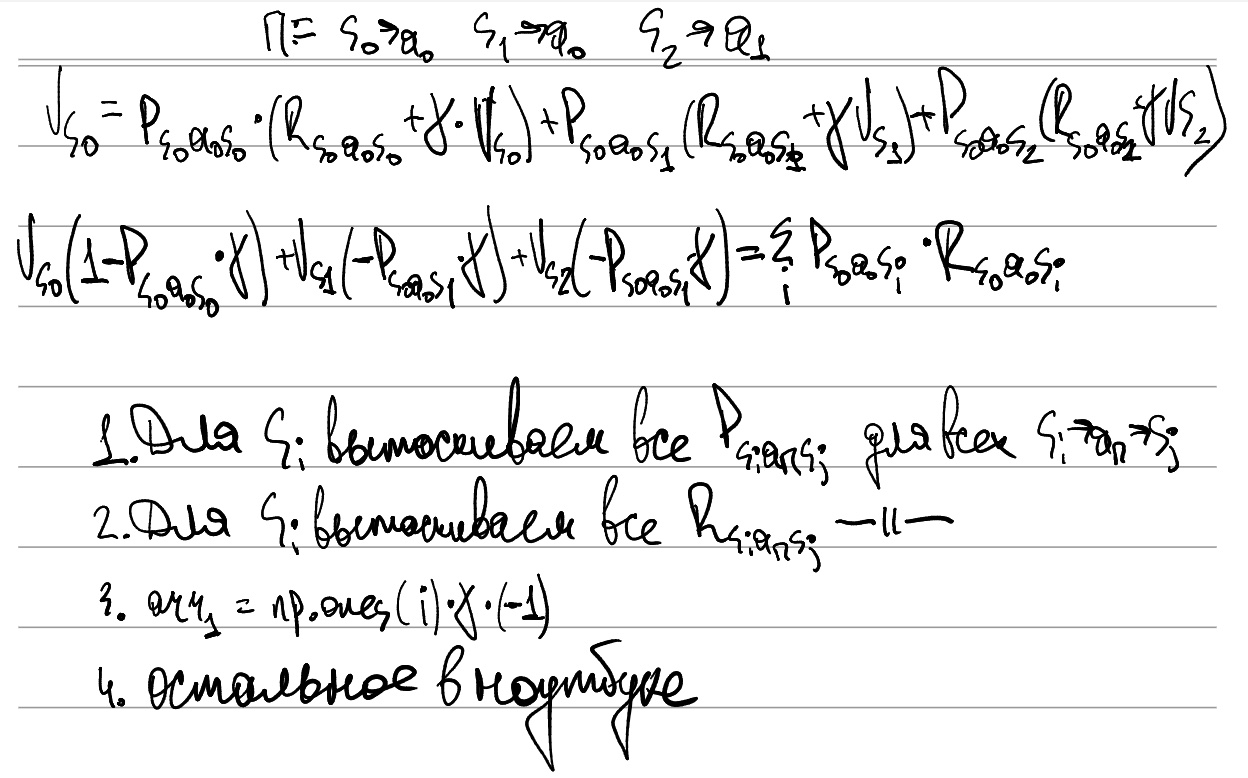 П= S₀→a₀ S₁→a₀ S₂→a₁
V_{S₀} = P_{S₀a₀S₀}·(R_{S₀a₀S₀}+γ·V_{S₀})+P_{S₀a₀S₁}(R_{S₀a₀S₁}+γV_{S₁})+P_{S₀a₀S₂}(R_{S₀a₀S₂}+γV_{S₂})
V_{S₀}(1-P_{S₀a₀S₀}·γ)+V_{S₁}(-P_{S₀a₀S₁}·γ)+V_{S₂}(-P_{S₀a₀S₁}γ)=Σ_i P_{S₀a₀S_i}·R_{S₀a₀S_i}
1. Для S_i вытаскиваем все P_{S_i a_n S_j} для всех S_i→a_n→S_j
2. Для S_i вытаскиваем все R_{S_i a_n S_j} —||—
3. arr₁ = np.ones(i)·γ·(-1)
4. остальное в ноутбуке